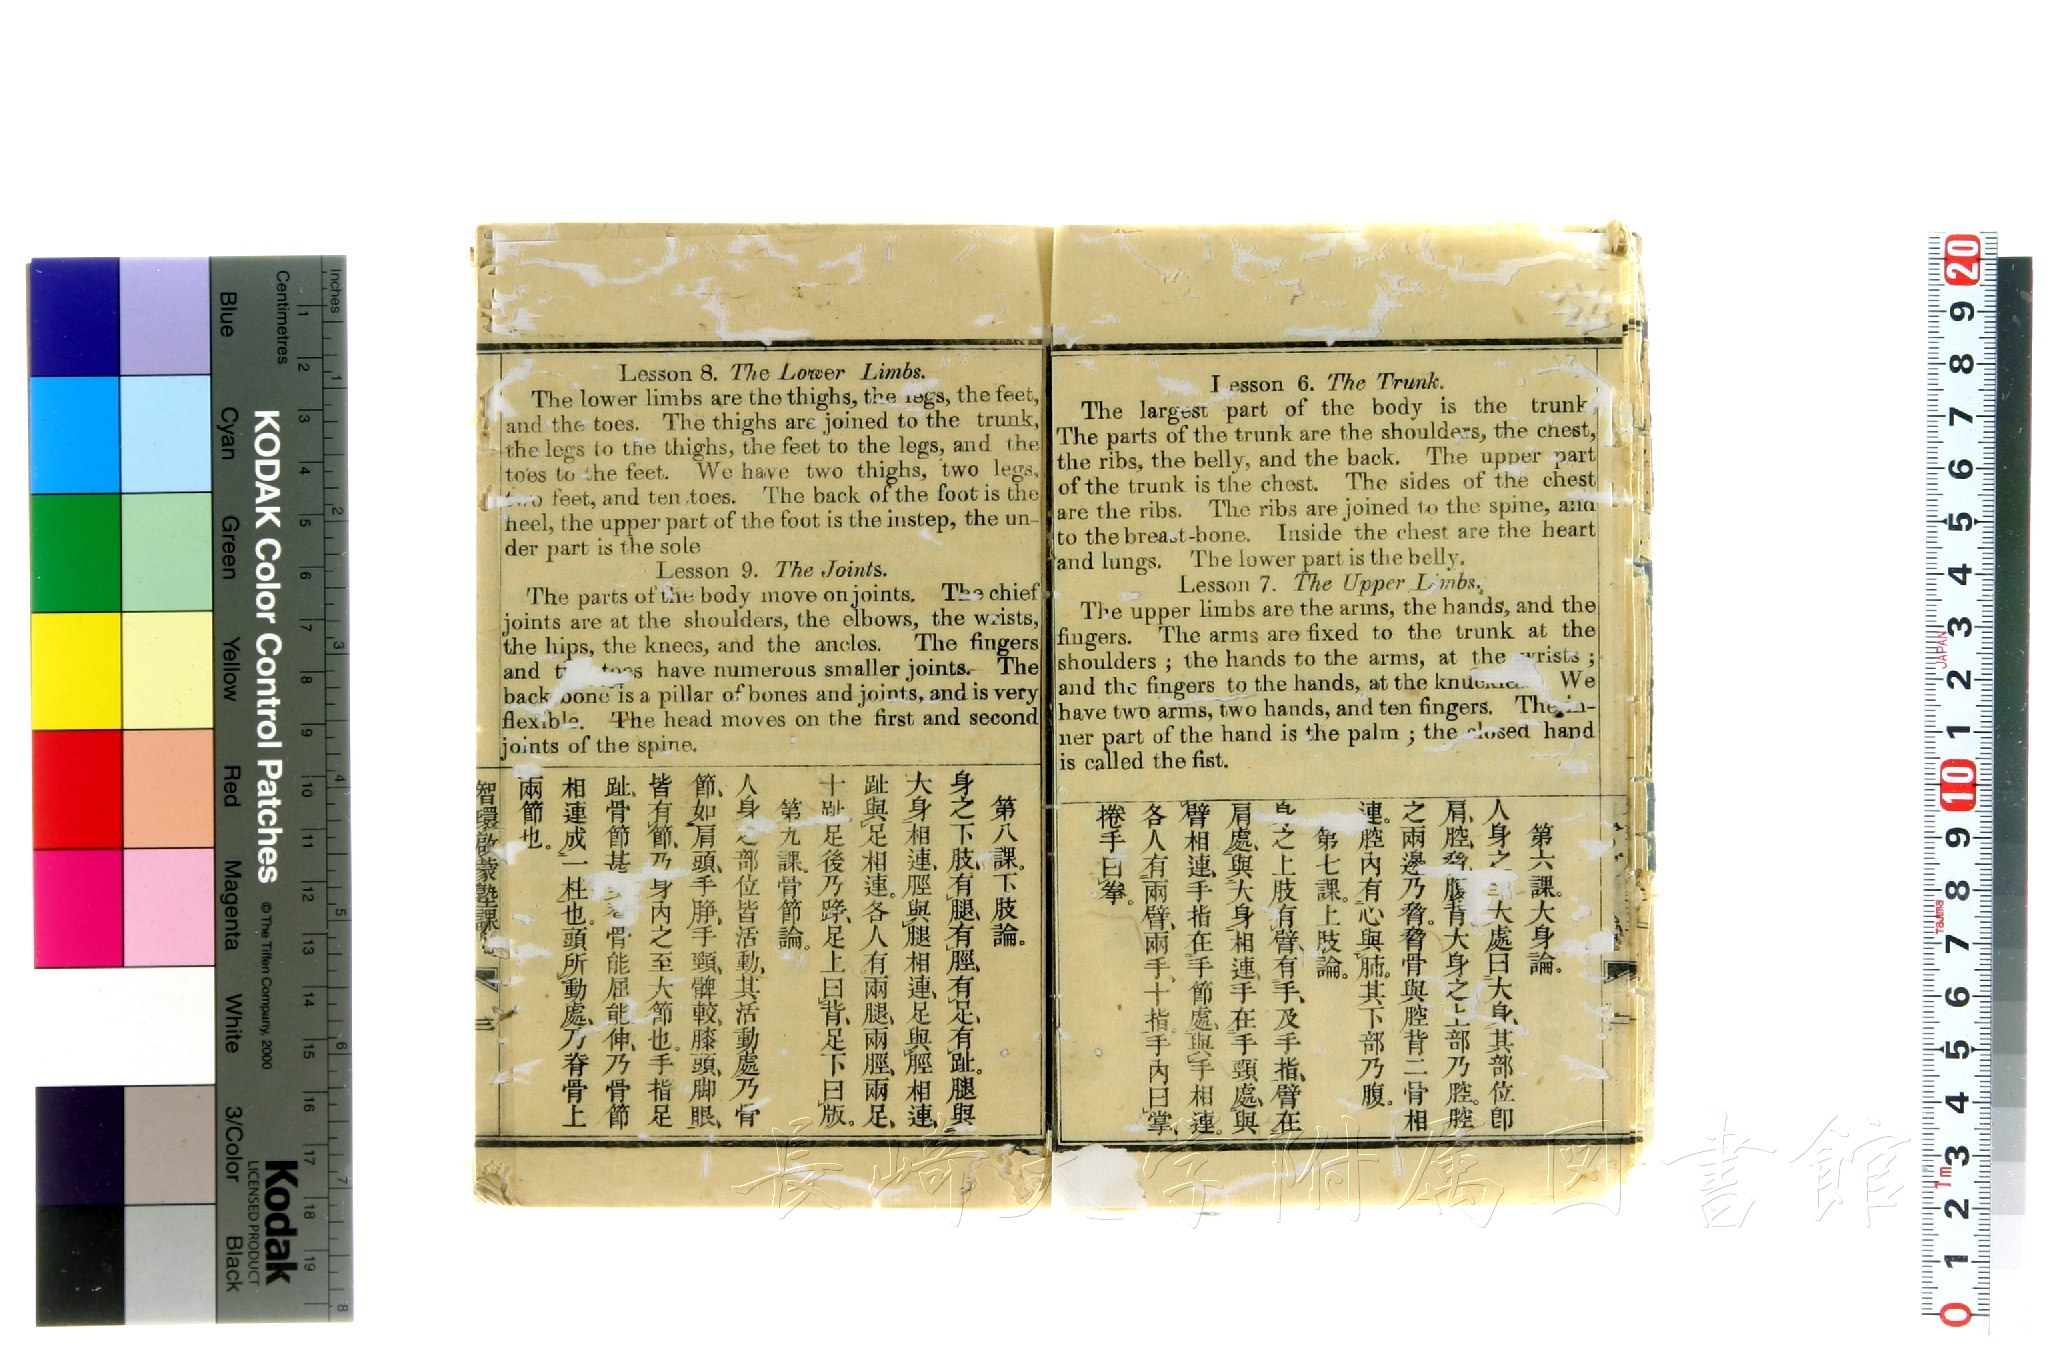 Lesson 6. The Trunk.
The largest part of the body is the trunk.
The parts of the trunk are the shoulders, the chest,
the ribs, the belly, and the back. The upper part
of the trunk is the chest. The sides of the chest
are the ribs. The ribs are joined to the spine, and
to the breast-bone. Inside the chest are the heart
and lungs. The lower part is the belly.
Lesson 7. The Upper Limbs.
The upper limbs are the arms, the hands, and the
fingers. The arms are fixed to the trunk at the
shoulders ; the hands to the arms, at the wrists ;
and the fingers to the hands, at the We
have two arms, two hands, and ten fingers. The in-
ner part of the hand is the palm ; the closed hand
is called the fist.
第六課。大身論。
人身之大處曰大身、其部位卽
肩、腔、脅、腹、背、大身之上部乃腔。腔
之兩邊乃脅。脅骨與腔背二骨相
連。腔內有心與肺。其下部乃腹。
第七課。上肢論。
身之上肢有臂、有手、及手指、臂在
肩處、與大身相連、手在手頸處、與
臂相連、手指在手節處、與手相連。
各人有兩臂、兩手、十指、手內曰掌、
捲手曰拳。
Lesson 8. The Lower Limbs.
The lower limbs are the thighs, the legs, the feet,
and the toes. The thighs are joined to the trunk,
the legs to the thighs, the feet to the legs, and the
toes to the feet. We have two thighs, two legs,
two feet, and ten toes. The back of the foot is the
heel, the upper part of the foot is the instep, the un-
der part is the sole
Lesson 9. The Joints.
The parts of the body move on joints. The chief
joints are at the shoulders, the elbows, the wrists,
the hips, the knees, and the ancles. The fingers
and the toes have numerous smaller joints. The
back bone is a pillar of bones and joints, and is very
flexible. The head moves on the first and second
joints of the spine.
第八課。下肢論。
身之下肢、有腿、有脛、有足、有趾。腿與
大身相連、脛與腿相連、足與脛相連、
趾與足相連。各人有兩腿、兩脛、兩足、
十趾、足後乃踭、足上曰背、足下曰版。
第九課。骨節論。
人身之部位皆活動、其活動處乃骨
節、如肩頭、手睜、手頸、髀較、膝頭、脚眼、
皆有節、乃身內之至大節也。手指足
趾、骨節甚骨能屈能伸、乃骨節
相連成一柱也。頭所動處、乃脊骨上
兩節也。
智環啟蒙塾課
三
長崎大学附属図書館
KODAK Color Control Patches
© The Tiffen Company, 2000
Kodak
LICENSED PRODUCT
Inches
1 2 3 4 5 6 7 8
Centimetres
1 2 3 4 5 6 7 8 9 10 11 12 13 14 15 16 17 18 19
Blue
Cyan
Green
Yellow
Red
Magenta
White
3/Color
Black
20 9 8 7 6 5 4 3 2 1 10 9 8 7 6 5 4 3 2 1 0
JAPAN
TAJIMA
1m